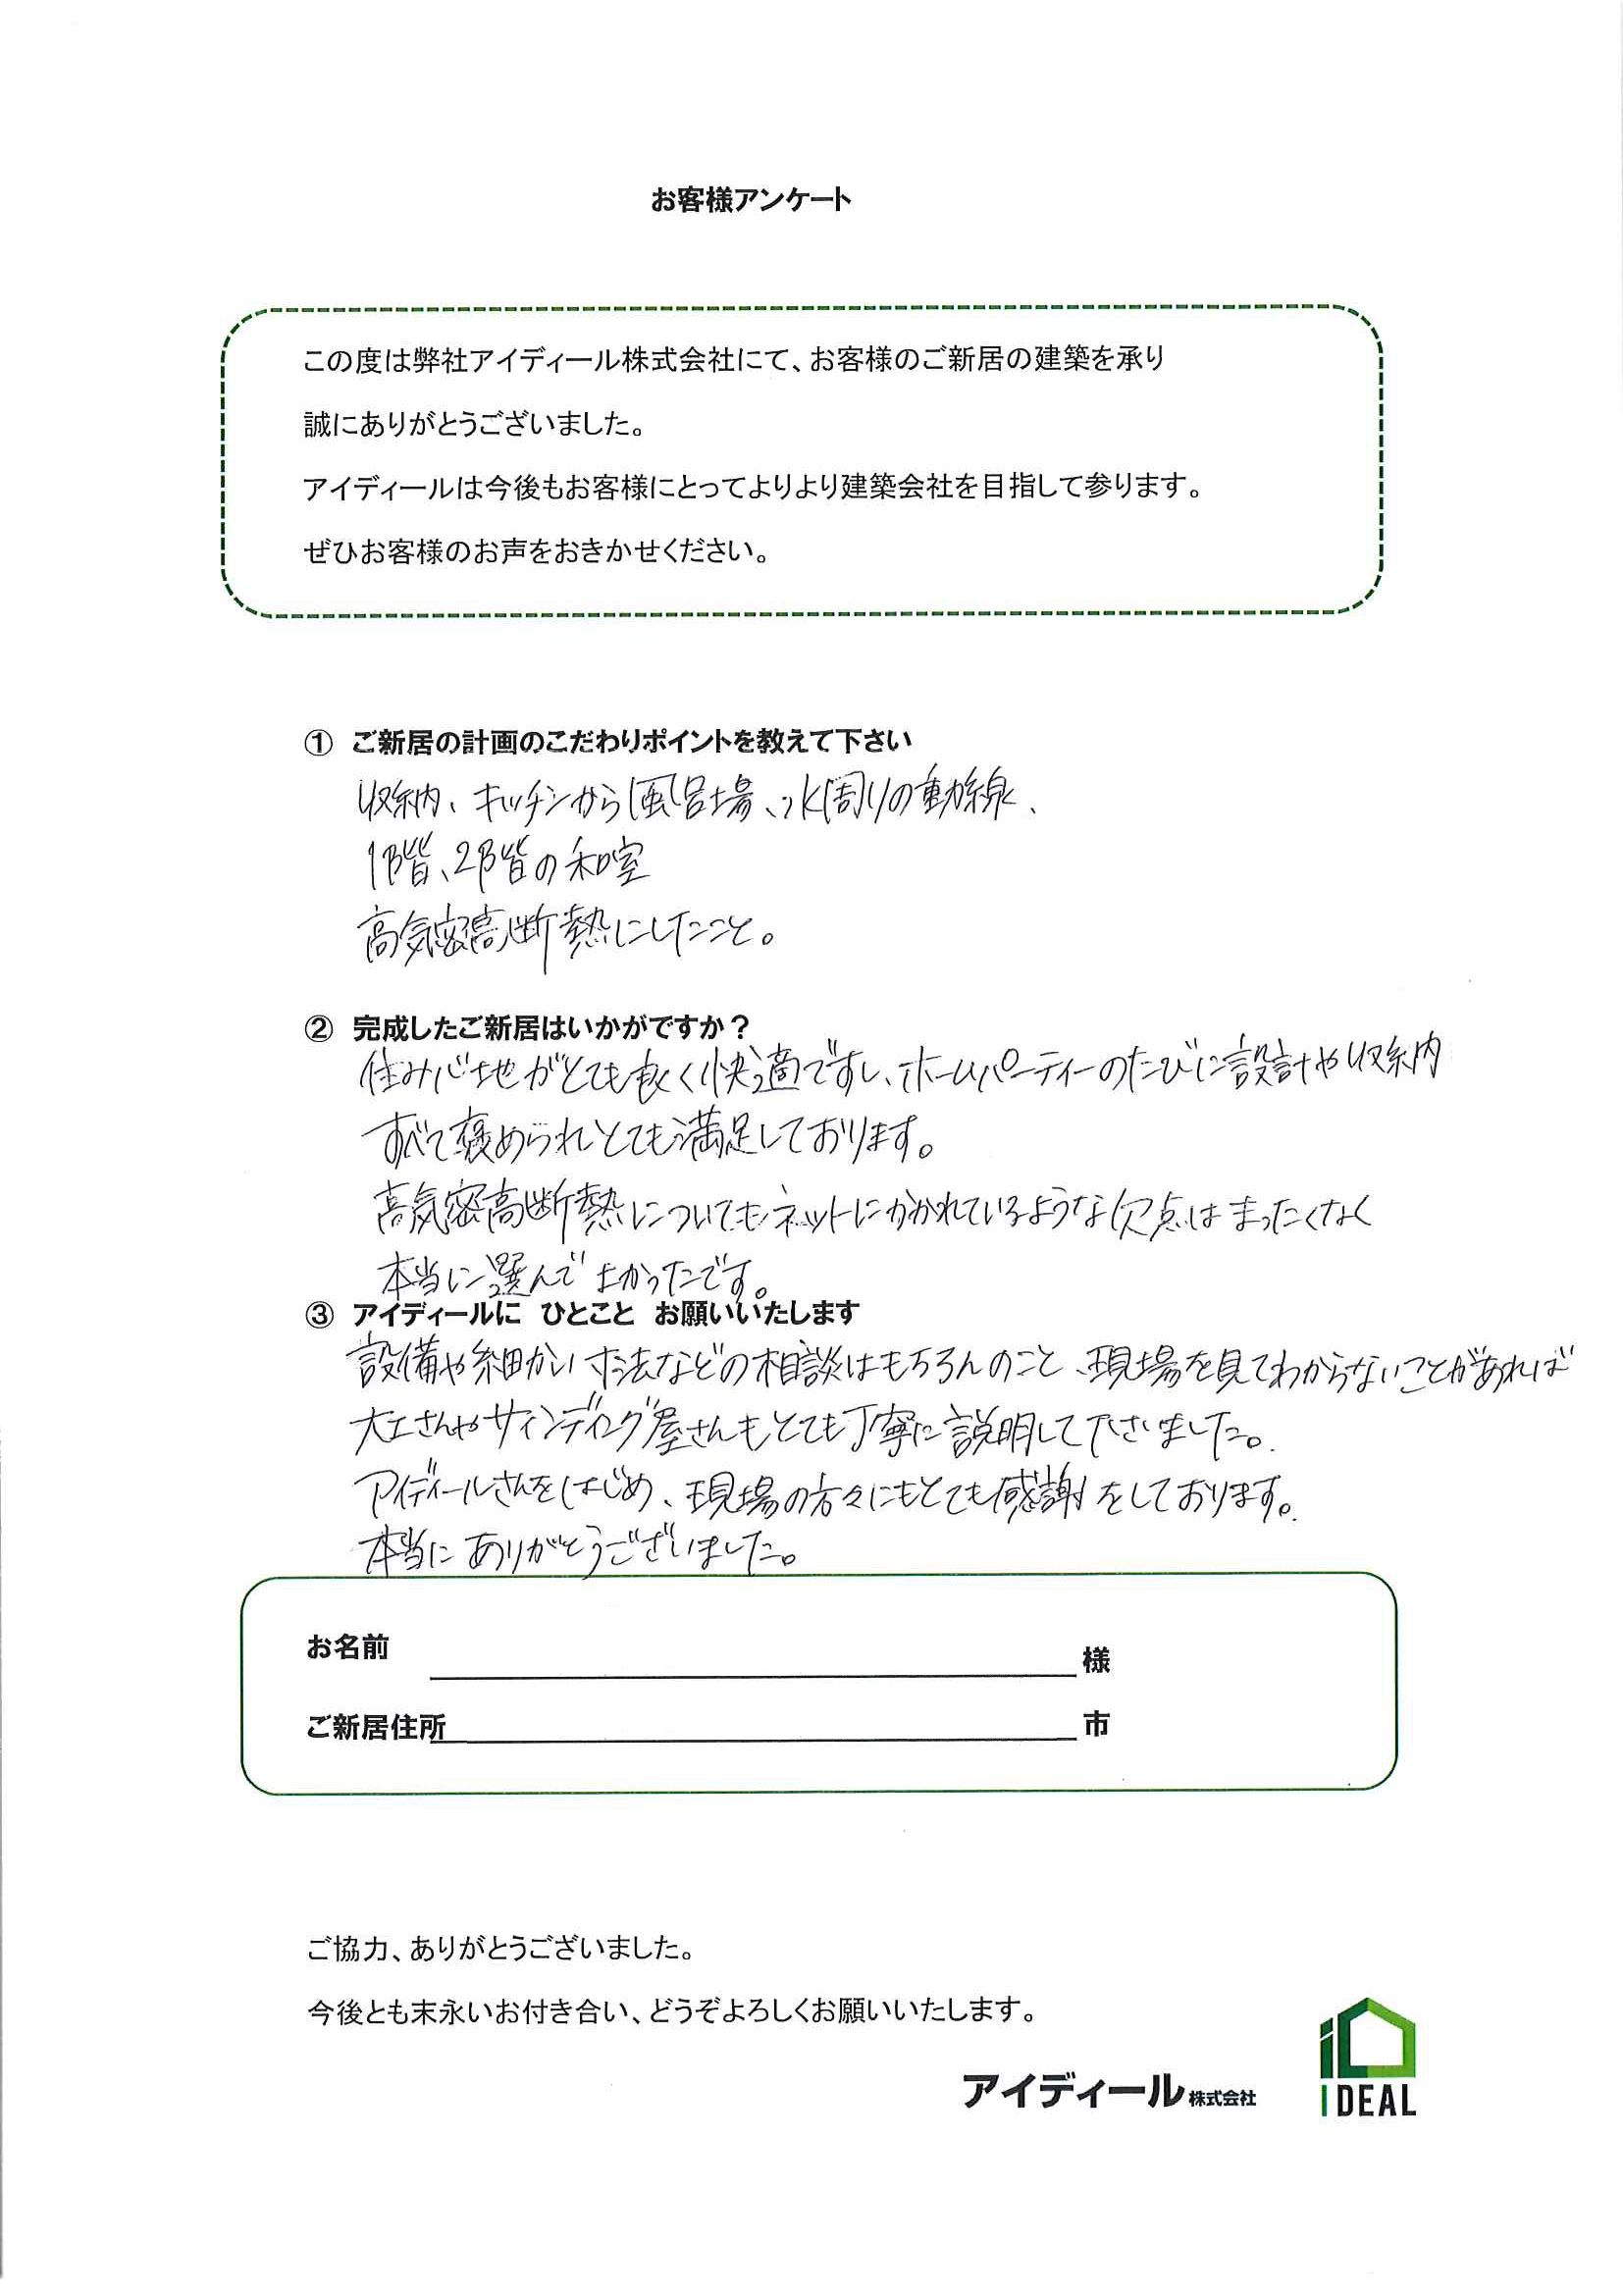 お客様アンケート
この度は弊社アイディール株式会社にて、お客様のご新居の建築を承り
誠にありがとうございました。
アイディールは今後もお客様にとってよりより建築会社を目指して参ります。
ぜひお客様のお声をおきかせください。
① ご新居の計画のこだわりポイントを教えて下さい
収納、キッチンから風呂場、水周りの動線、
1階、2階の和室
高気密高断熱にしたこと。
② 完成したご新居はいかがですか？
住み心地がとても良く快適ですし、ホームパーティーのたびに設計や収納
すべて褒められとても満足しております。
高気密高断熱についてもネットにかかれているような欠点はまったくなく
本当に選んでよかったです。
③ アイディールに ひとこと お願いいたします
設備や細かい寸法などの相談はもちろんのこと、現場を見てわからないことがあれば
大工さんやサインディング屋さんもとても丁寧に説明して下さいました。
アイディールさんをはじめ、現場の方々にもとても感謝をしております。
本当にありがとうございました。
お名前 様
ご新居住所 市
ご協力、ありがとうございました。
今後とも末永いお付き合い、どうぞよろしくお願いいたします。
アイディール株式会社
IDEAL